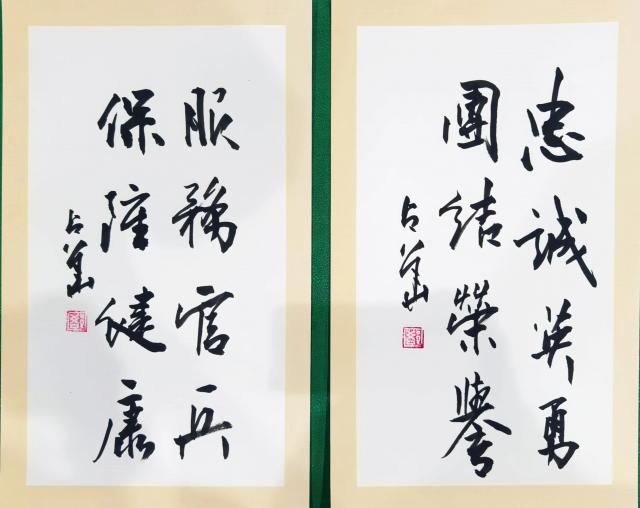 忠誠英勇
團結榮譽
占英
服務官兵
保障健康
占英